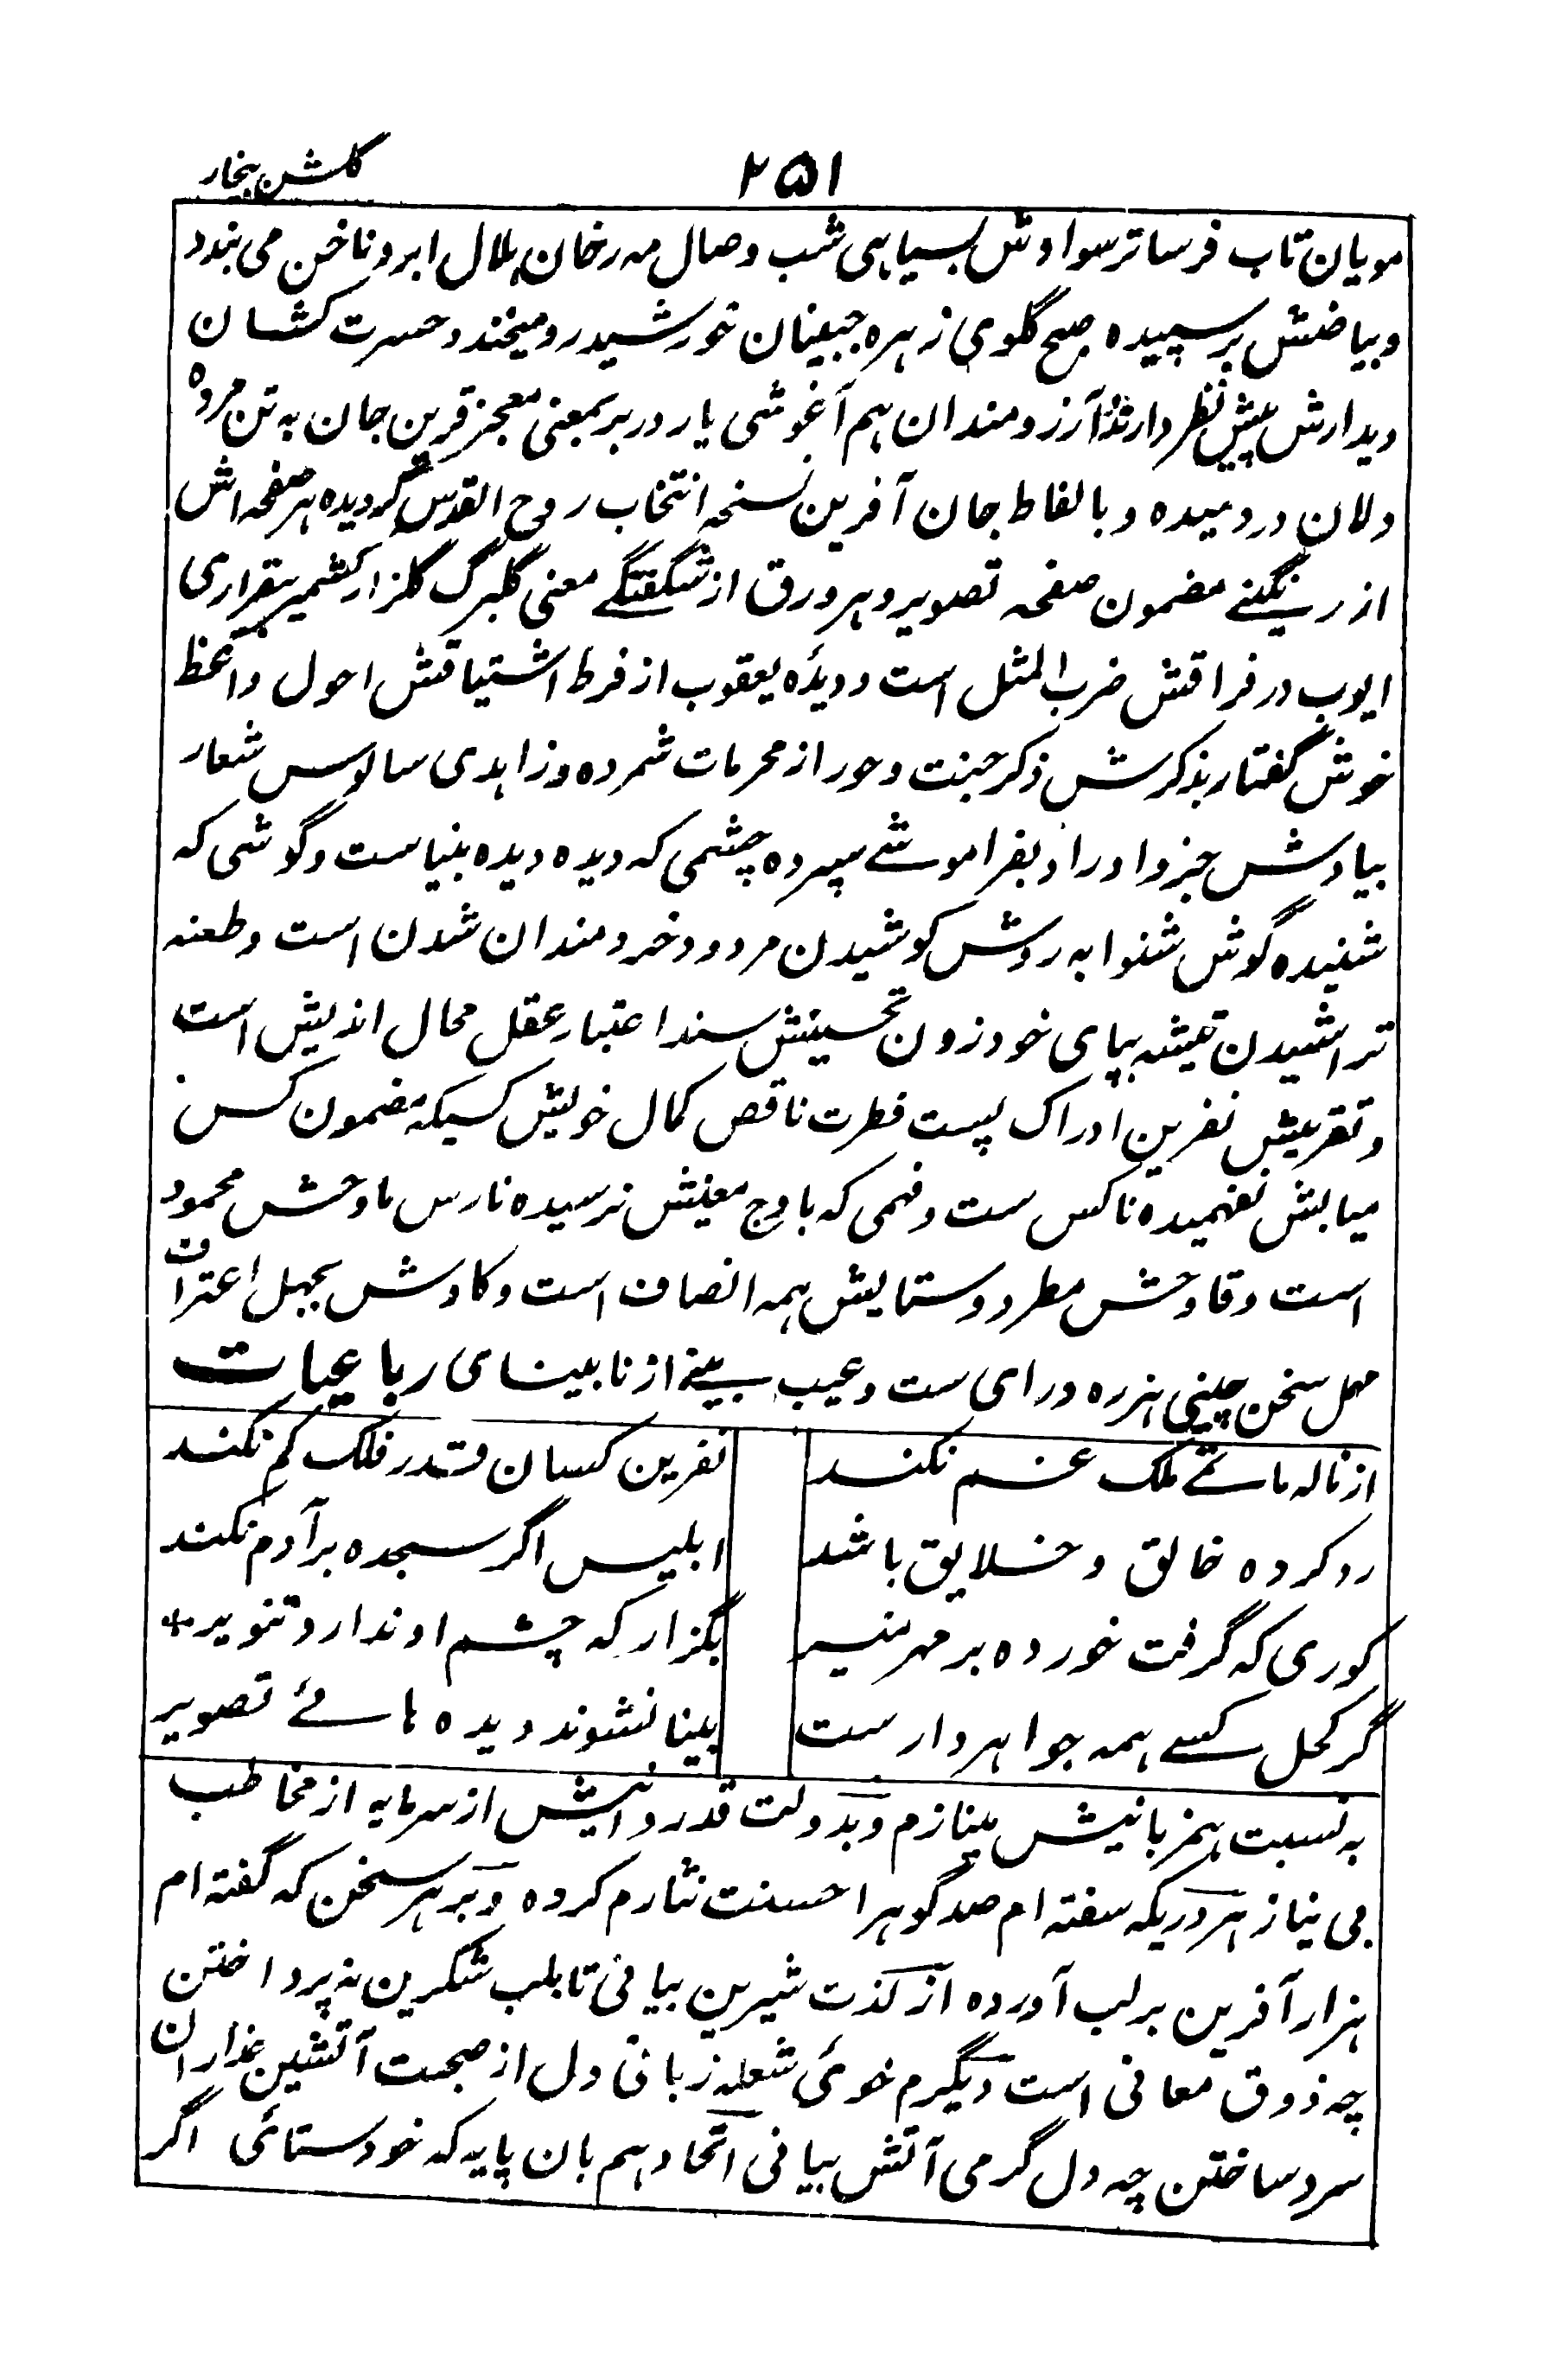 ۲۵۱
گلشن بیخار
مویان تاب فرسا تر سوادش بسیاهی شب وصال مه رخان هلال ابرو ناخن می بندد
و بیاضش بر سپیده صبح گلوی زهره جبینان خورشید رو میخندد حسرت کشان
دیدارش پیش نظر دارند آرزومندان هم آغوشی یار در بر بمعنی معجز قرین جان به تن مرده
دلان در دمیده و بالفاظ جان آفرین نسخه انتخاب روح القدس گردیده هر صفحه اش
از رنگینے مضمون صفحه تصویر و هر ورق از شگفتگے معنی گلبرگ گلزار کشمیر بیقراری
ایوب در فراقش ضرب المثل است و دیدهٔ یعقوب از فرط اشتیاقش احول واعظ
خوش گفتار بذکرش ذکر جنت و حور از محرمات شمرده و زاهدی سالوس شعار
بیادش جز و اوراد بفراموشے سپرده چشمی که دیده دیده بنیاست و گوشی که
شنیده گوش شنوا به ردش کوشیدن مردود خردمندان شدن است و طعنه
تراشیدن تیشه بپای خود زدن تحسینش سند اعتبار عقل محال اندیش است
و تقریبش نفرین ادراک پست فطرت ناقص کمال خویش کسیکه مضمون کس
میابش نفهمیده ناکس ست و فهمی که باوج معنیش نرسیده نارس مادحش محمود
است و قادحش مطرود ستایش همه انصاف است و کاوش بجهل اعتراف
مهل سخن چینی هرزه درای ست و عیب بینے از نابینای رباعیات
از ناله ماتمے ملک غم نکند
نفرین کسان قدر فلک کم نکند
رد کرده خالق و خلایق باشد
ابلیس اگر سجده بر آدم نکند
کوری که گرفت خورده بر مهر منیر
بگزار که چشم او ندارد تنویر
گر کحل کسے همه جواهر دارست
بینا نشوند دیده هاے تصویر
به نسبت همزبانیش مینازم و بدولت قدردانیش از سرمایه از مخاطب
بی نیاز هر دریکه سفته ام صد گوهر احسنت نثارم کرده و بر هر سخن که گفته ام
هزار آفرین بر لب آورده از لذت شیرین بیانی تا بلب شکرین نه پرداختن
چه ذوق معانی است دیگرم خوئی شعله زبانی دل از صحبت آتشین عذاران
سرد ساختن چه دل گرمی آتش بیانی اتحادهم بان پایه که خودستائی اگر